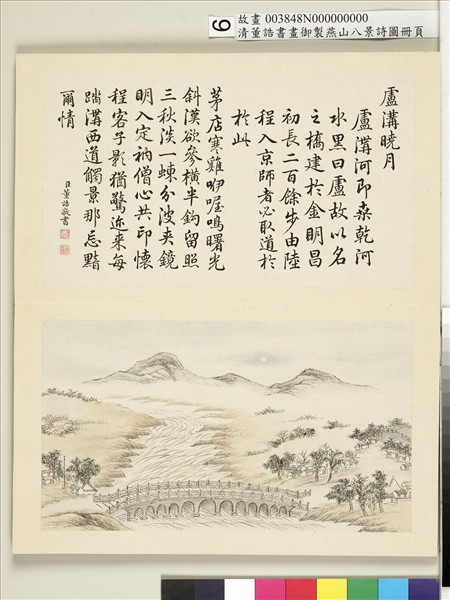 故畫 003848N000000000
清董誥書畫御製燕山八景詩圖冊頁
9
盧溝曉月
盧溝河即桑乾河
水黑曰盧故以名
之橋建於金明昌
初長二百餘步由陸
程入京師者必取道於
於此
茅店寒雞咿喔鳴曙光
斜漢欲參橫半鉤留照
三秋淡一蝀分波夾鏡
明入定衲僧心共印懷
程客子影猶驚迩來每
踏溝西道觸景那忘黯
爾情
臣董誥敬書